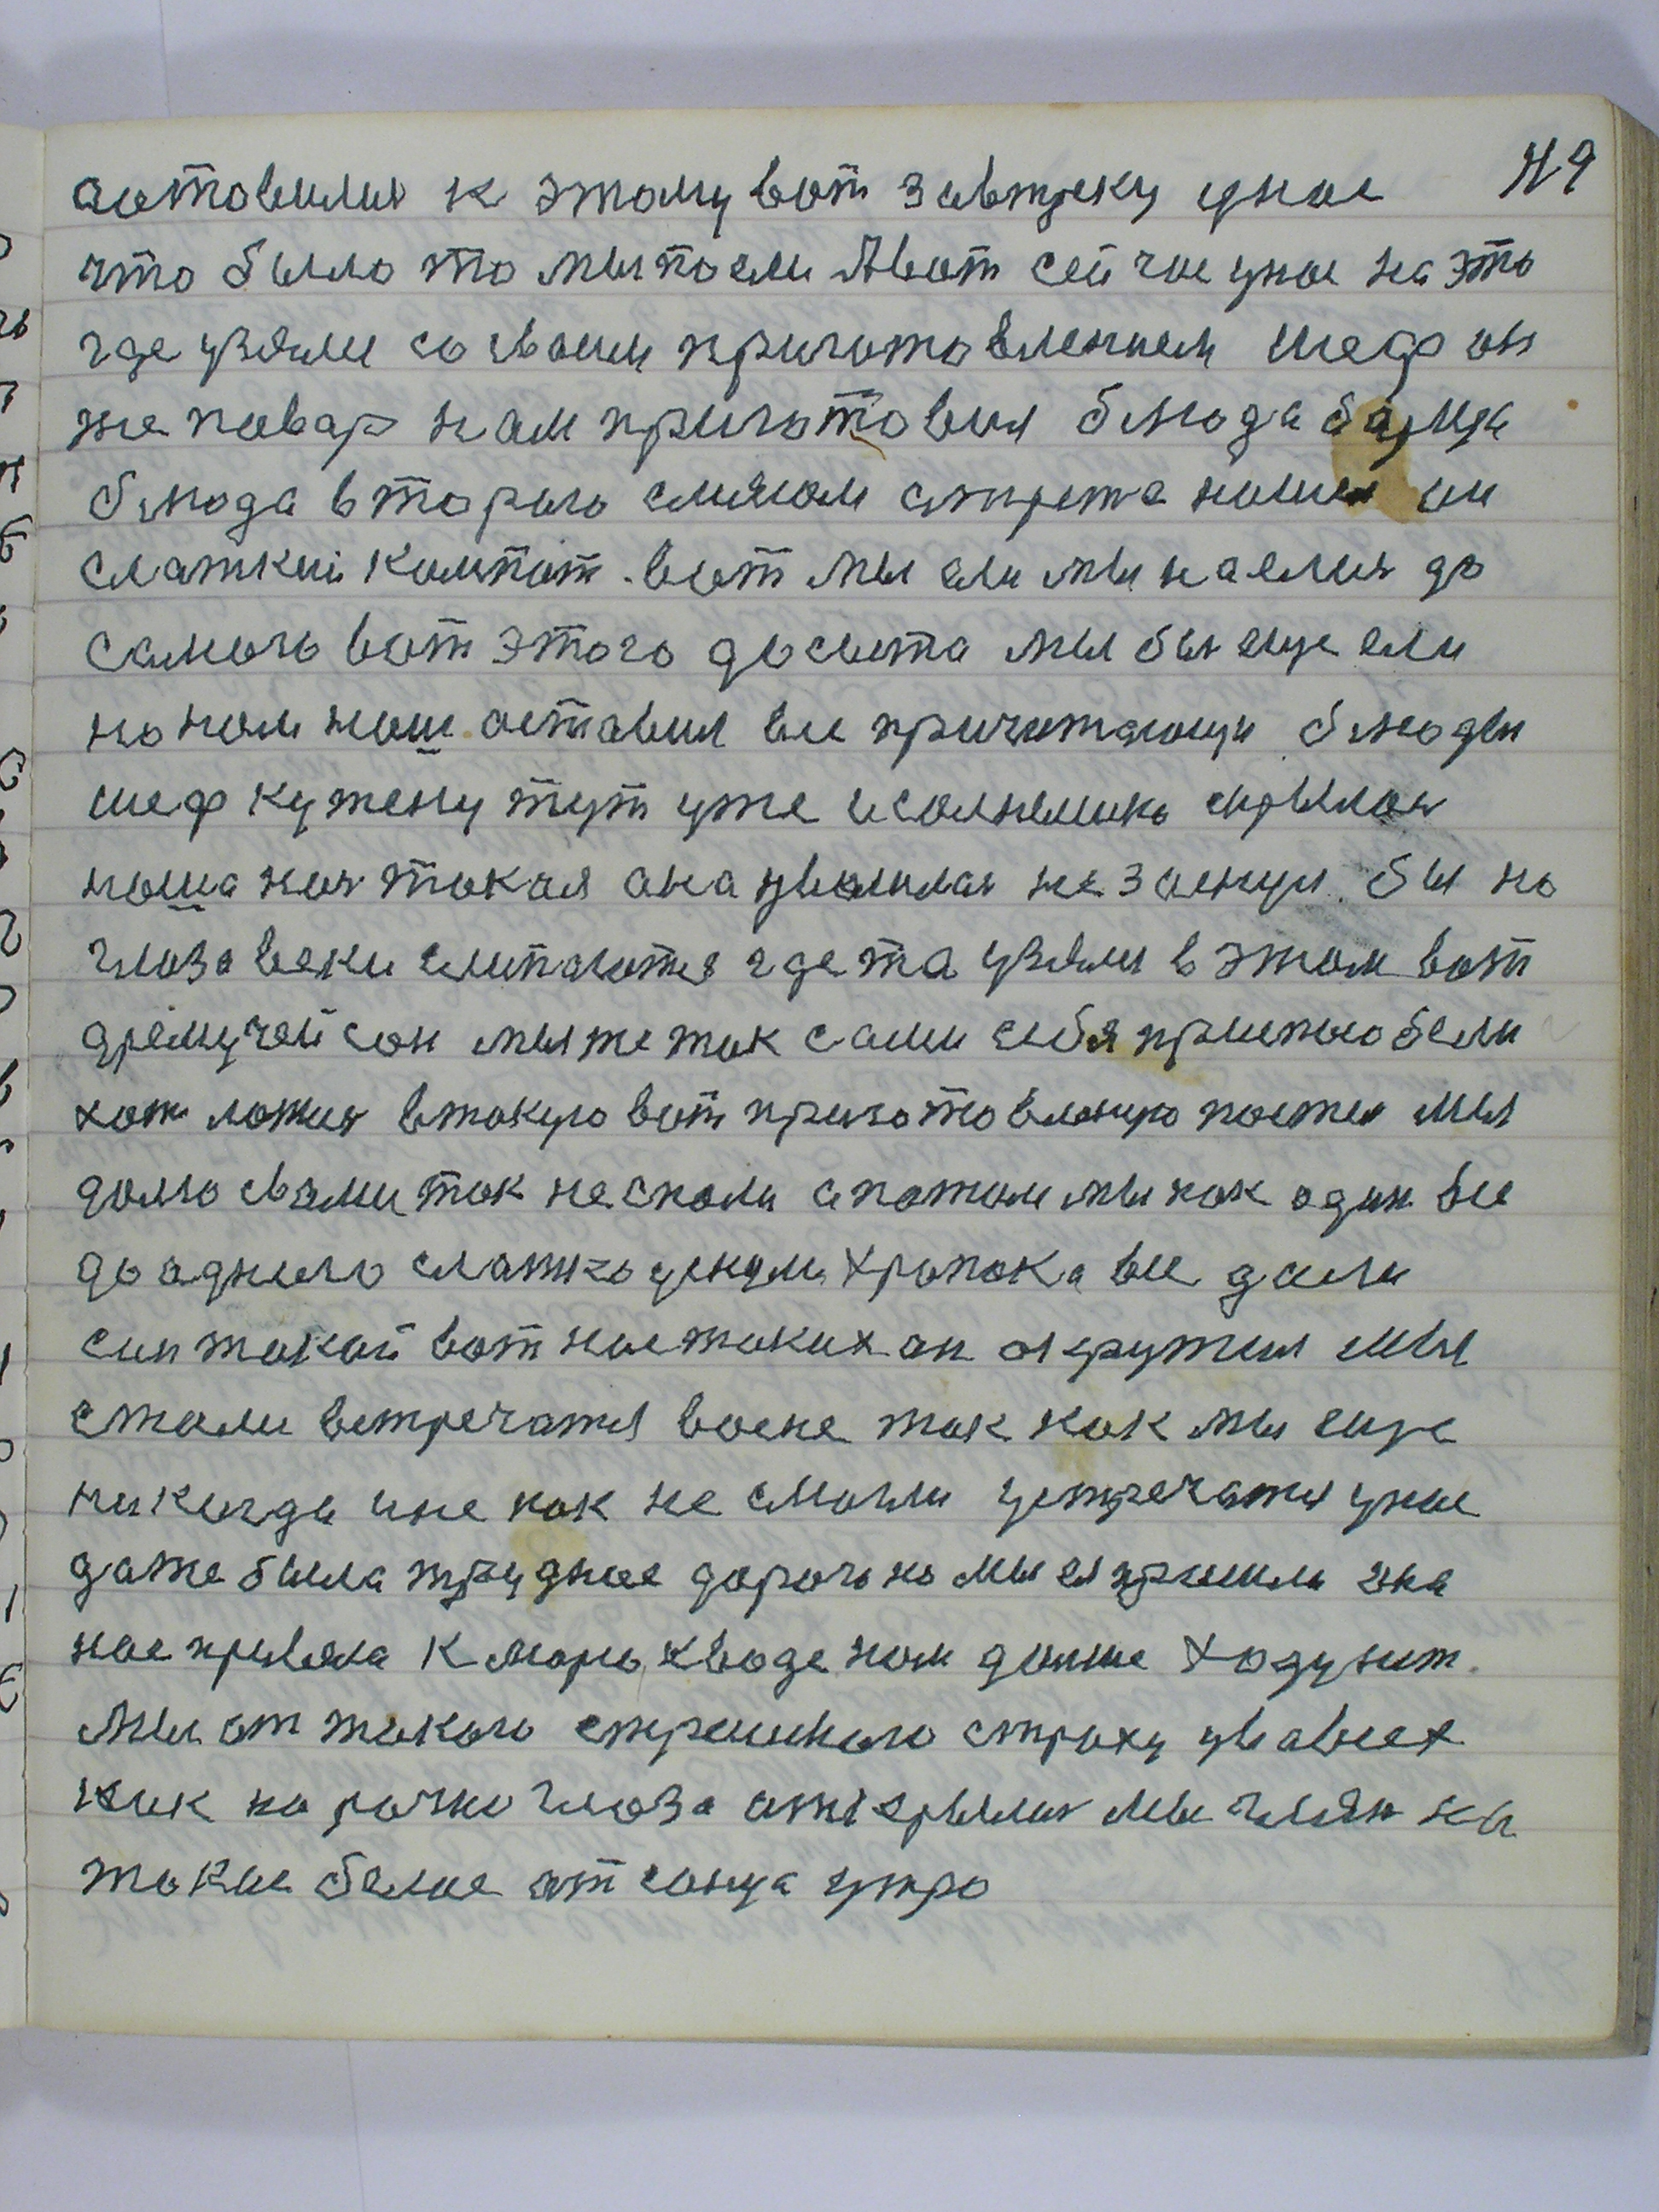 49
астовился к этому вот завтреку унас
что было то мы поели Авот сейчас унас на это
где узялси со своим приготовлением шеф он
же повар нам приготовил блюда барща
блюда второго с мясом
слаткий компот. вот мы ели мы наелися до
самого вот этого досыта мы бы еще ели
но нам наш оставил все причитающи блюды
шеф кужену тут уже исолнешико скрылося
наша ноч такая ана увалилася не заснул бы но
глаза веки слипаются где та узялся в этом вот
дремучей сон мы же так сами себя приспособели
хоть ложися втакую вот приготовленую постел мы
долго свами так неспали апотом мы как один все
до аднаго слатко уснули храпока все дали
сип такой вот нас таких он окружил мы
стали встречатся восне так как мы еще
никагда ине как не смогли устречатся унас
даже была трудное дорога но мы ея прошли она
нас привяла К морю, кводе нам даише ходу нет.
Мы от такого страшного страху увавсех
как на рачки глаза аткрылися мы глян на
такое белое от сонца утро